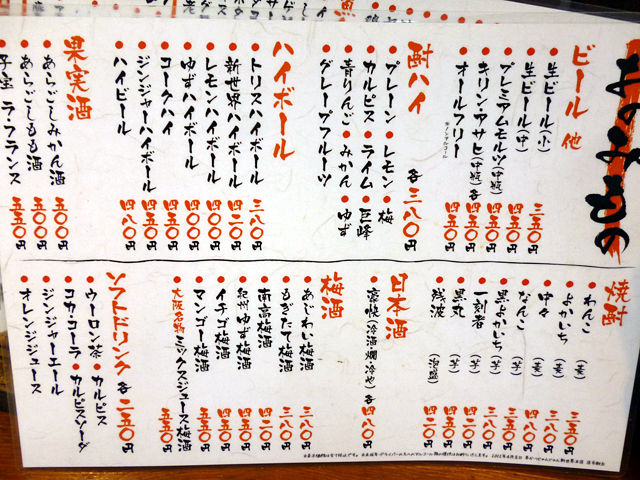 おのみもの
ビール 他
生ビール(小) 三五〇円
生ビール(中) 四五〇円
プレミアムモルツ(中瓶) 五五〇円
キリン・アサヒ(中瓶)各 五五〇円
オールフリー 四五〇円
※ノンアルコール
酎ハイ 各三八〇円
プレーン・レモン・梅
カルピス・ライム・巨峰
青りんご・みかん・ゆず
グレープフルーツ
ハイボール
トリスハイボール 三八〇円
新世界ハイボール 四二〇円
レモンハイボール 四五〇円
ゆずハイボール 四五〇円
コークハイ 四五〇円
ジンジャーハイボール 四五〇円
ハイビール 四八〇円
果実酒
あらごしみかん酒 五〇〇円
あらごしもも酒 五〇〇円
子宝 ラ・フランス 五五〇円
焼酎
わんこ (麦) 三五〇円
よかいち (麦) 三五〇円
中々 (麦)
なんこ (芋)
黒よかいち (芋) 三八〇円
一刻者 (芋)
黒丸 (芋)
残波 (泡盛) 四二〇円
日本酒
豪快(冷酒・燗・冷や)各 四八〇円
梅酒
あじわい梅酒 三八〇円
もぎたて梅酒 三八〇円
南高梅酒 四二〇円
紀州ゆず梅酒 四五〇円
イチゴ梅酒 四五〇円
マンゴー梅酒 五五〇円
大阪名物ミックスジュース梅酒 五五〇円
ソフトドリンク 各二五〇円
ウーロン茶・カルピス
コカ・コーラ・カルピスソーダ
ジンジャーエール
オレンジジュース